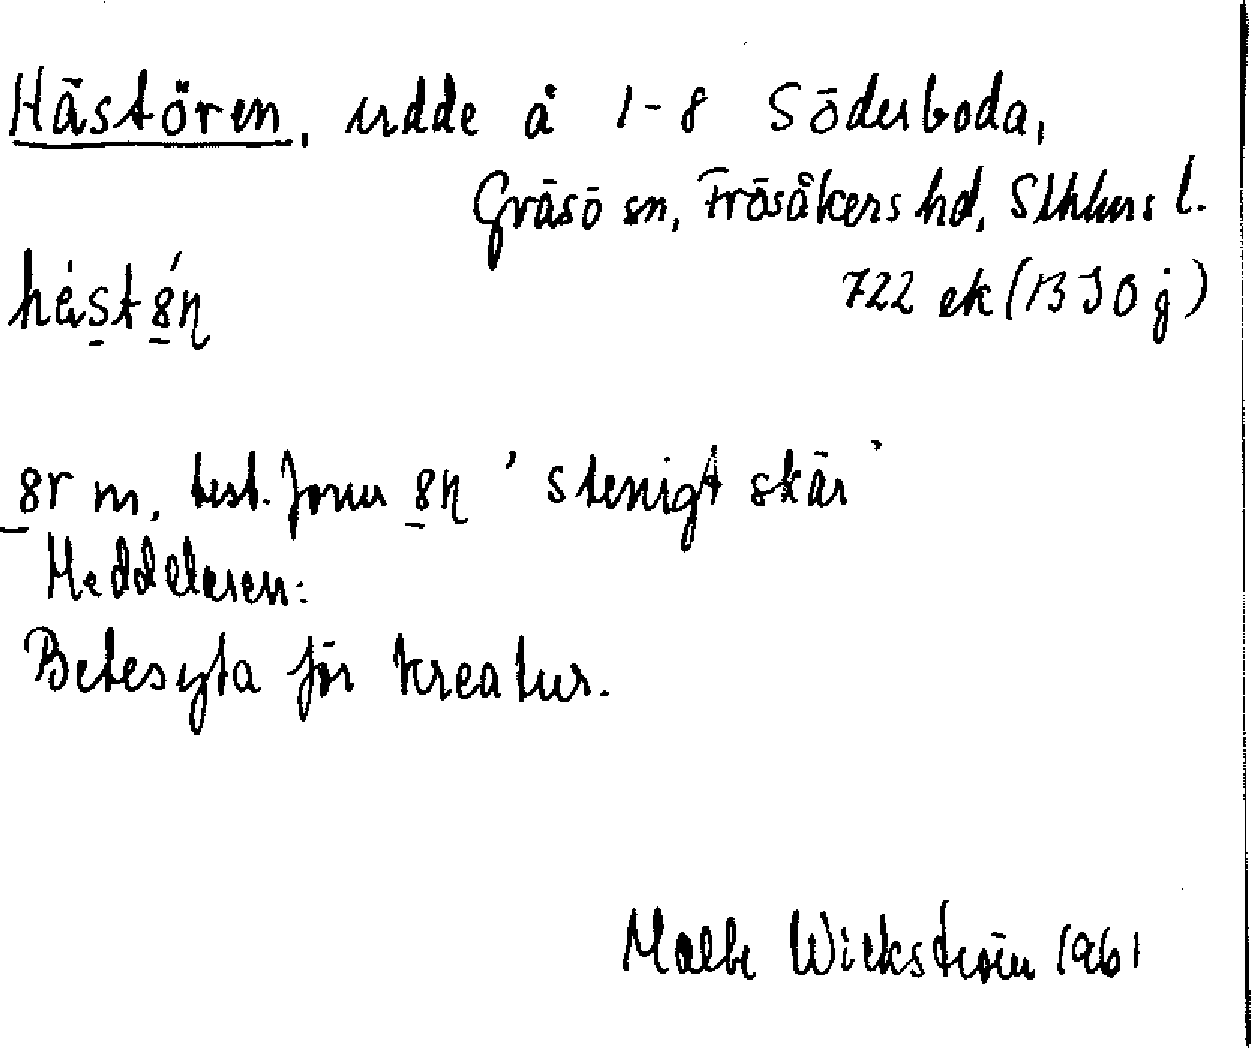 Hästören, udde å 1-8 Söderboda,
Gräsö sn, Frösåkers hd, Sthlms l.
hästȣn 722 ek (13 I 0 j)
ȣr m. best. form ȣn ' stenigt skär '
Meddelaren:
Betesyta för kreatur.
Malbe Wickström 1961